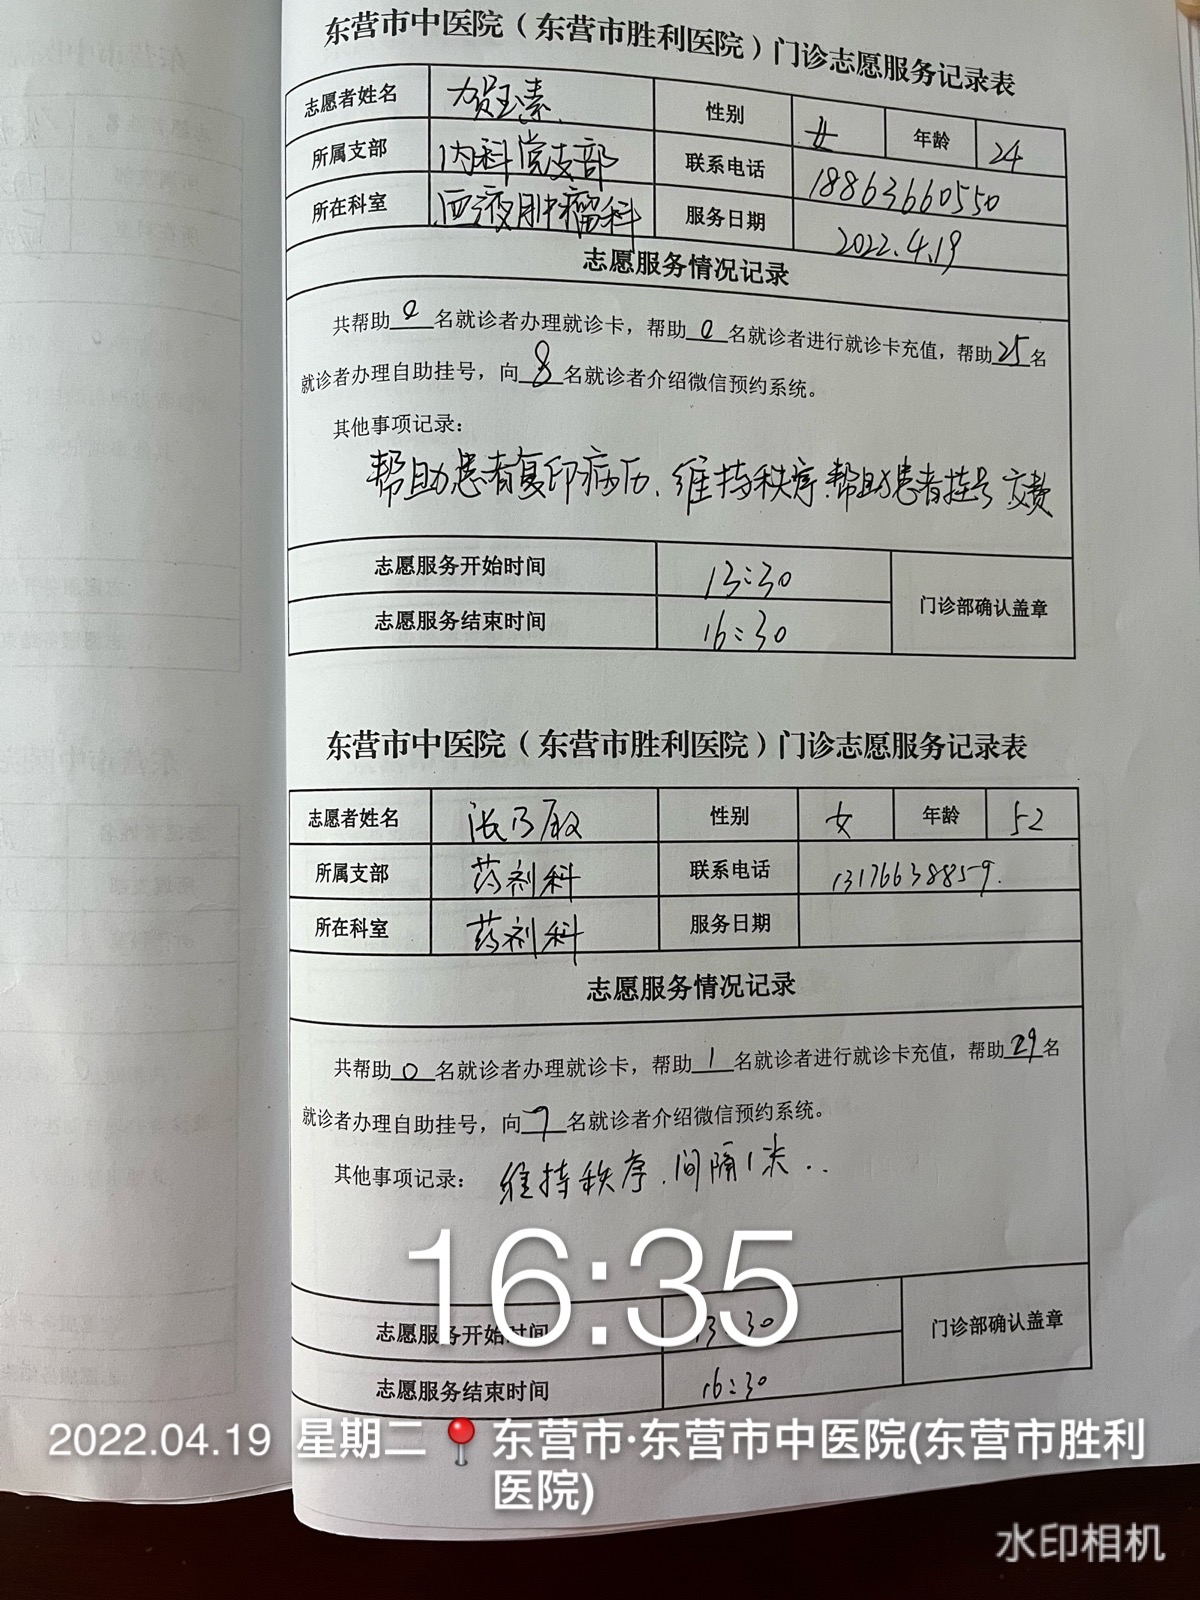 东营市中医院（东营市胜利医院）门诊志愿服务记录表
志愿者姓名 贺玉素 性别 女 年龄 24
所属支部 内科党支部 联系电话 18863660550
所在科室 血液肿瘤科 服务日期 2022.4.19
志愿服务情况记录
共帮助0名就诊者办理就诊卡，帮助0名就诊者进行就诊卡充值，帮助25名
就诊者办理自助挂号，向8名就诊者介绍微信预约系统。
其他事项记录：
帮助患者复印病历、维持秩序、帮助患者挂号交费
志愿服务开始时间 13:30
门诊部确认盖章
志愿服务结束时间 16:30
东营市中医院（东营市胜利医院）门诊志愿服务记录表
志愿者姓名 张乃敏 性别 女 年龄 52
所属支部 药剂科 联系电话 13176638859.
所在科室 药剂科 服务日期
志愿服务情况记录
共帮助0名就诊者办理就诊卡，帮助1名就诊者进行就诊卡充值，帮助29名
就诊者办理自助挂号，向7名就诊者介绍微信预约系统。
其他事项记录： 维持秩序.间隔1米..
16:35
志愿服务开始时间 13:30
门诊部确认盖章
志愿服务结束时间 16:30
2022.04.19 星期二 东营市·东营市中医院(东营市胜利
医院)
水印相机